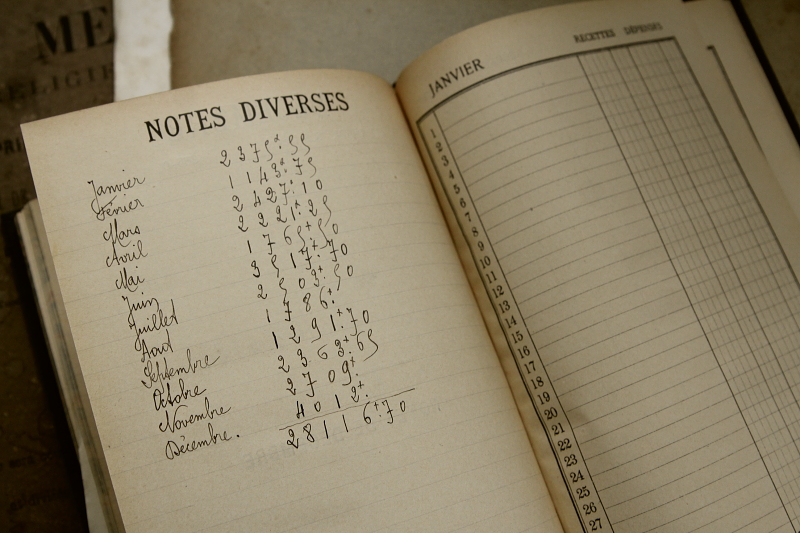 NOTES DIVERSES
Janvier 2375+.55
Février 1143+.75
Mars 2427+.10
Avril 2221+.25
Mai 1765+.50
Juin 3517+.70
Juillet 2503+.50
Aout 1786+.
Septembre 1291+.70
Octobre 2363+.65
Novembre 2709+.
Décembre. 4012+.
28116+70
JANVIER RECETTES DÉPENSES
1
2
3
4
5
6
7
8
9
10
11
12
13
14
15
16
17
18
19
20
21
22
23
24
25
26
27
ME